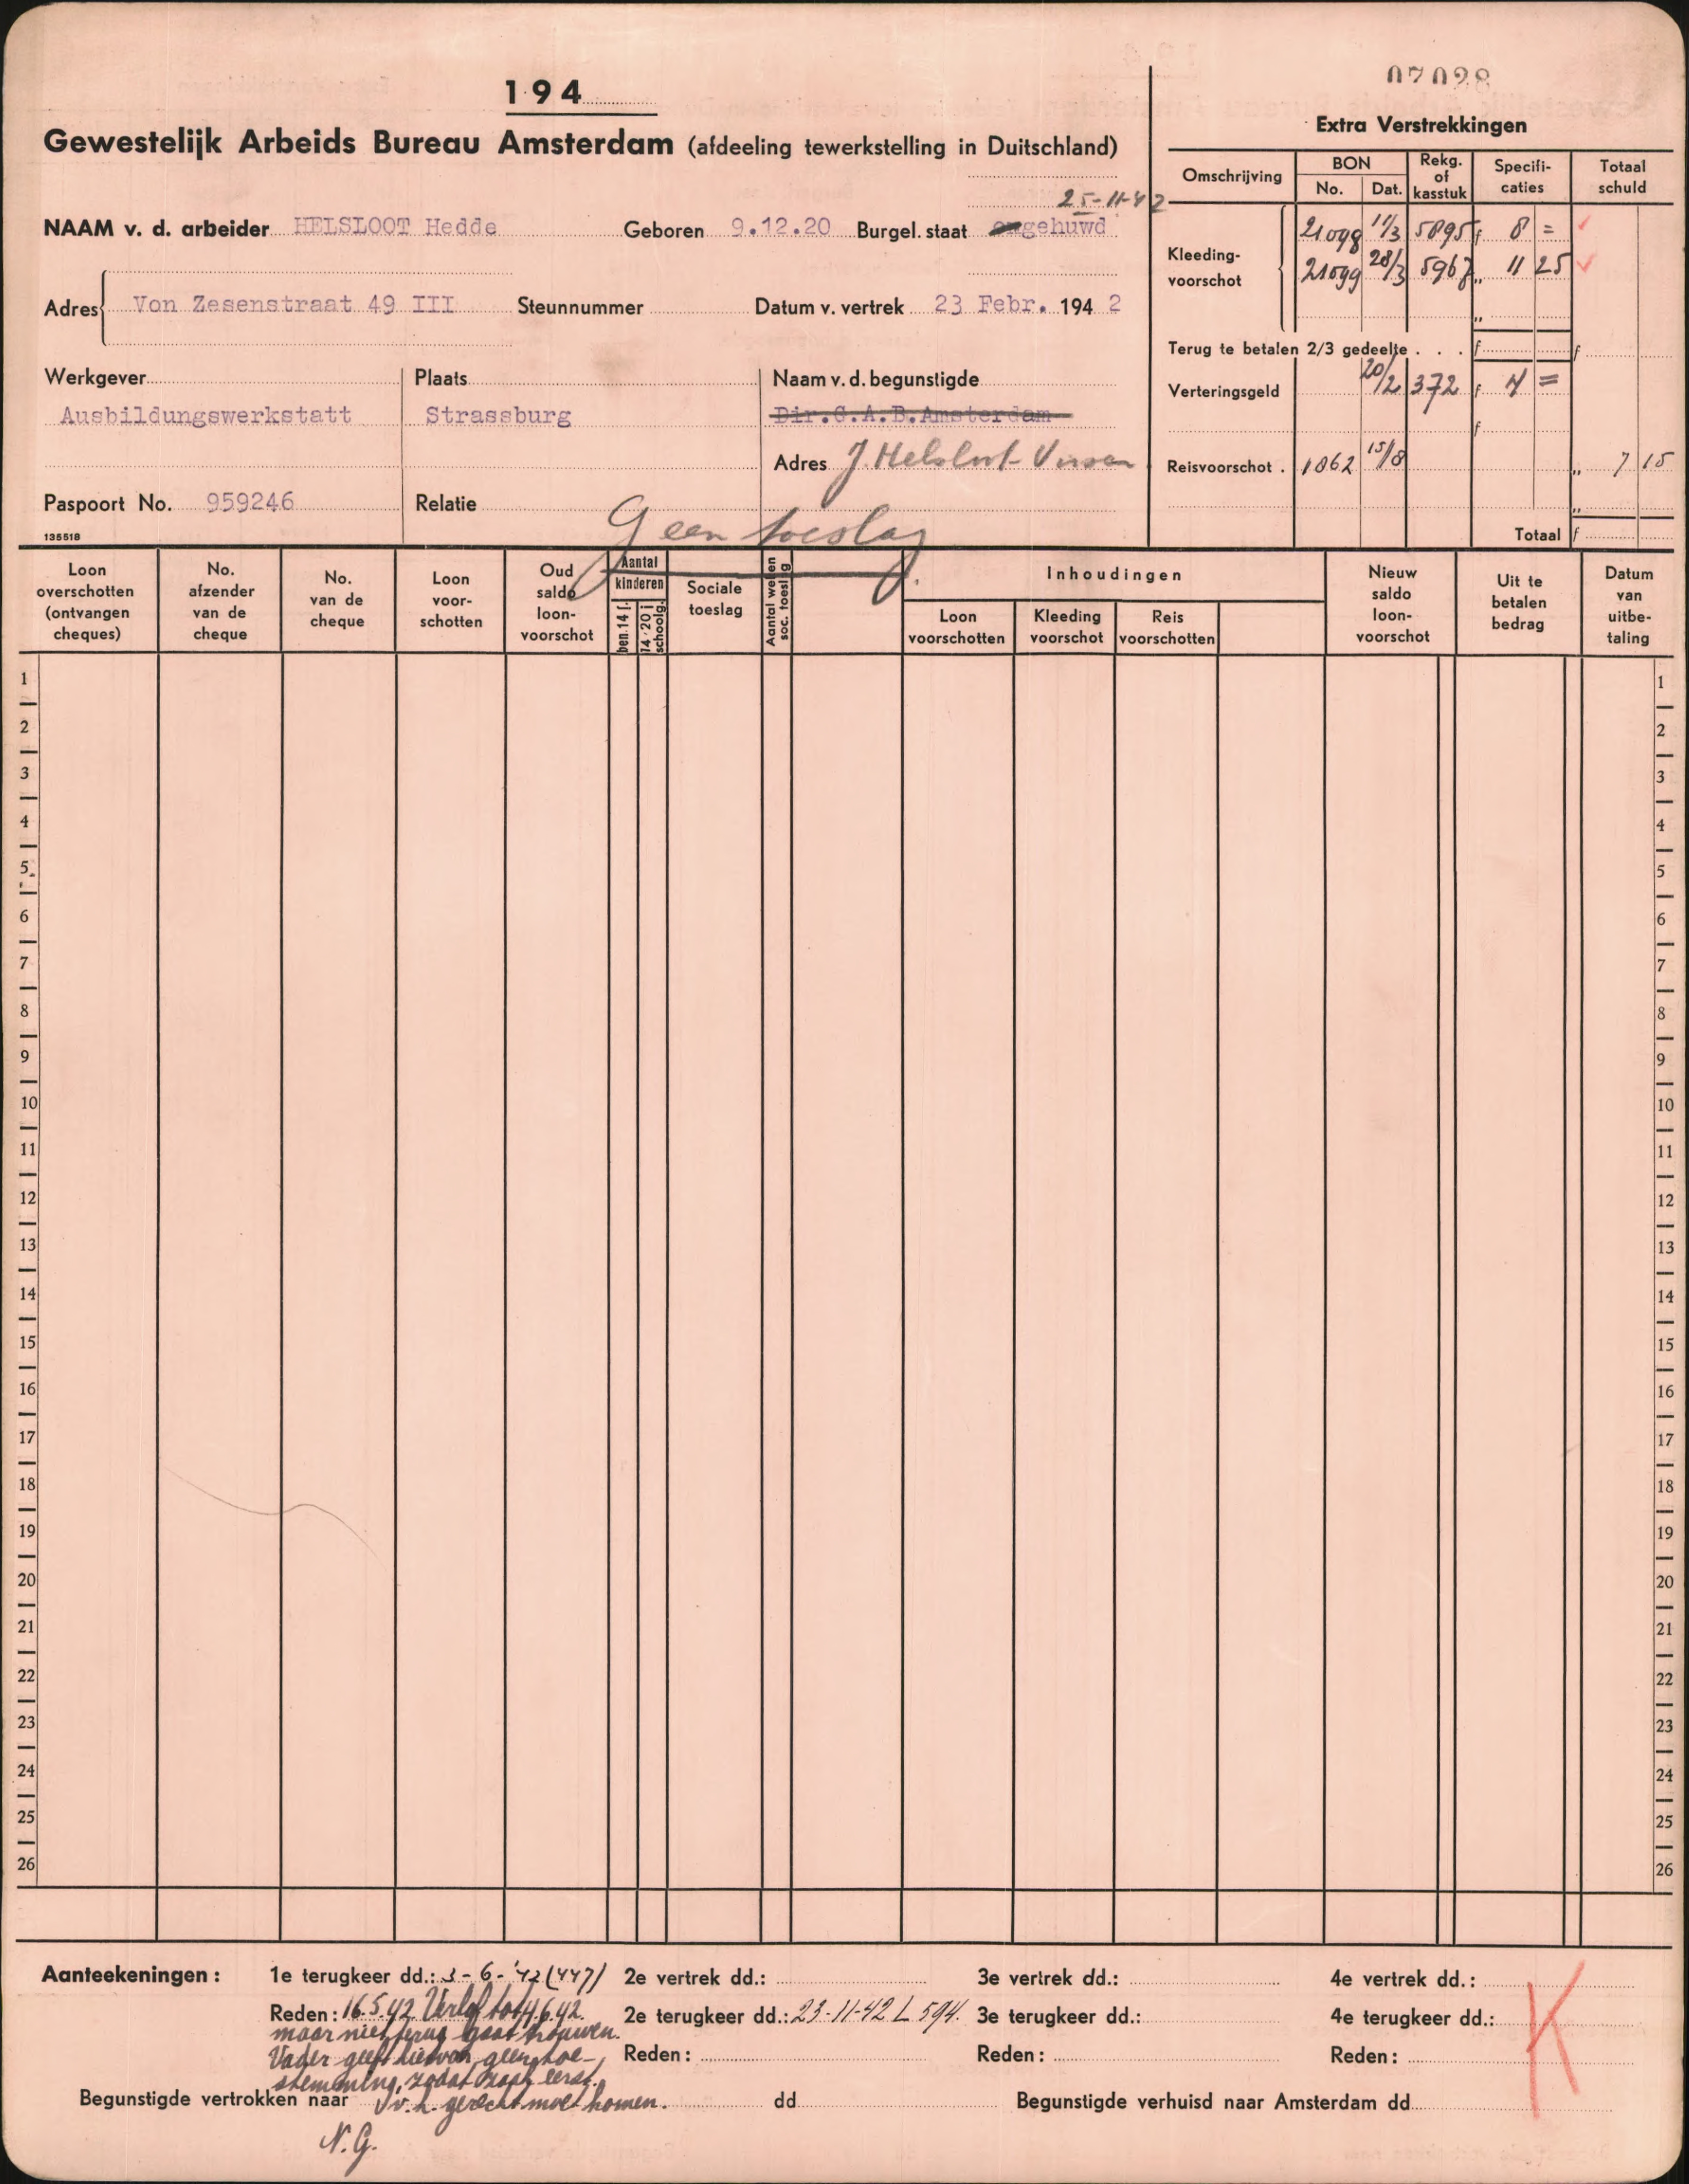 07028
194
Gewestelijk Arbeids Bureau Amsterdam (afdeeling tewerkstelling in Duitschland)
Extra Verstrekkingen
Omschrijving BON No. Dat. Rekg. of kasstuk Specifi-caties Totaal schuld
25-11-42
NAAM v. d. arbeider HELSLOOT Hedde Geboren 9.12.20 Burgel. staat gehuwd
Adres Von Zesenstraat 49 III Steunnummer Datum v. vertrek 23 Febr. 1942
Kleeding-voorschot
21098 11/3 5895 f 8 =
21099 28/3 5967 „ 11 25
„
Terug te betalen 2/3 gedeelte . . . f f
Verteringsgeld 20/2 372 f 4 =
f
Reisvoorschot . 1062 15/8 „ 7 15
„
Totaal f
Werkgever Plaats Naam v. d. begunstigde
Ausbildungswerkstatt Strassburg Dir.G.A.B.Amsterdam
Adres J. Helsloot-
Paspoort No. 959246 Relatie
Geen toeslag
135518
Loon overschotten (ontvangen cheques)
No. afzender van de cheque
No. van de cheque
Loon voor-schotten
Oud saldo loon-voorschot
Aantal kinderen
ben. 14 j.
14-20 j. schoolg.
Sociale toeslag
Aantal weken soc. toeslag
Inhoudingen
Loon voorschotten
Kleeding voorschot
Reis voorschotten
Nieuw saldo loon-voorschot
Uit te betalen bedrag
Datum van uitbe-taling
1 1
2 2
3 3
4 4
5 5
6 6
7 7
8 8
9 9
10 10
11 11
12 12
13 13
14 14
15 15
16 16
17 17
18 18
19 19
20 20
21 21
22 22
23 23
24 24
25 25
26 26
Aanteekeningen : 1e terugkeer dd.: 3-6-'42 (447) 2e vertrek dd.: 3e vertrek dd.: 4e vertrek dd.:
Reden : 16.5.42 Verlof tot 4.6.42. 2e terugkeer dd.: 23-11-42 L 594. 3e terugkeer dd.: 4e terugkeer dd.:
maar niet terug gaat trouwen.
Vader geeft hiervan geen toe- Reden : Reden : Reden :
stemming, zodat zaak eerst
Begunstigde vertrokken naar v.h. gerecht moet komen. dd Begunstigde verhuisd naar Amsterdam dd
N.G.
K